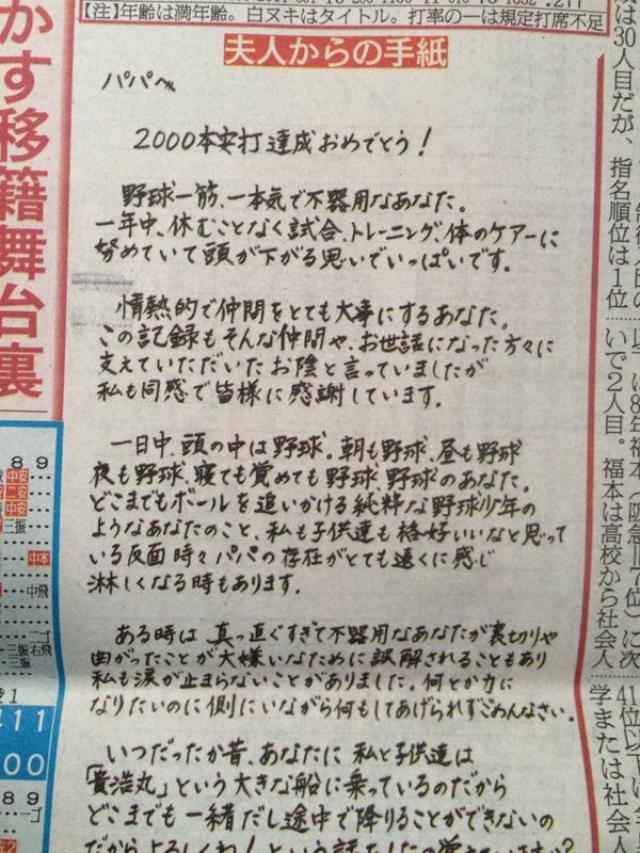 【注】年齢は満年齢。白ヌキはタイトル。打率の一は規定打席不足
夫人からの手紙
パパへ
2000本安打達成おめでとう!
野球一筋、一本気で不器用なあなた。
一年中、休むことなく試合、トレーニング、体のケアーに
努めていて頭が下がる思いでいっぱいです。
情熱的で仲間をとても大事にするあなた。
この記録もそんな仲間や、お世話になった方々に
支えていただいたお陰と言っていましたが
私も同感で皆様に感謝しています。
一日中、頭の中は野球。朝も野球、昼も野球
夜も野球、寝ても覚めても野球、野球のあなた。
どこまでもボールを追いかける純粋な野球少年の
ようなあなたのこと、私も子供達も格好いいなと思って
いる反面時々パパの存在がとても遠くに感じ
淋しくなる時もあります。
ある時は真っ直ぐすぎて不器用なあなたが裏切りや
曲がったことが大嫌いなために誤解されることもあり
私も涙が止まらないことがありました。何とか力に
なりたいのに側にいながら何もしてあげられずごめんなさい。
いつだったか昔、あなたに私と子供達は
「貴浩丸」という大きな船に乗っているのだから
どこまでも一緒だし途中で降りることができないの
かす移籍舞台裏
8 9
中安
二安
中安
二振
中本
中飛
二ゴ
三振 右飛
三振
411
00
8 9
は30人目だが、
指名順位は1位
いで2人目。福本は高校から社会人
41位以下
学または社会人